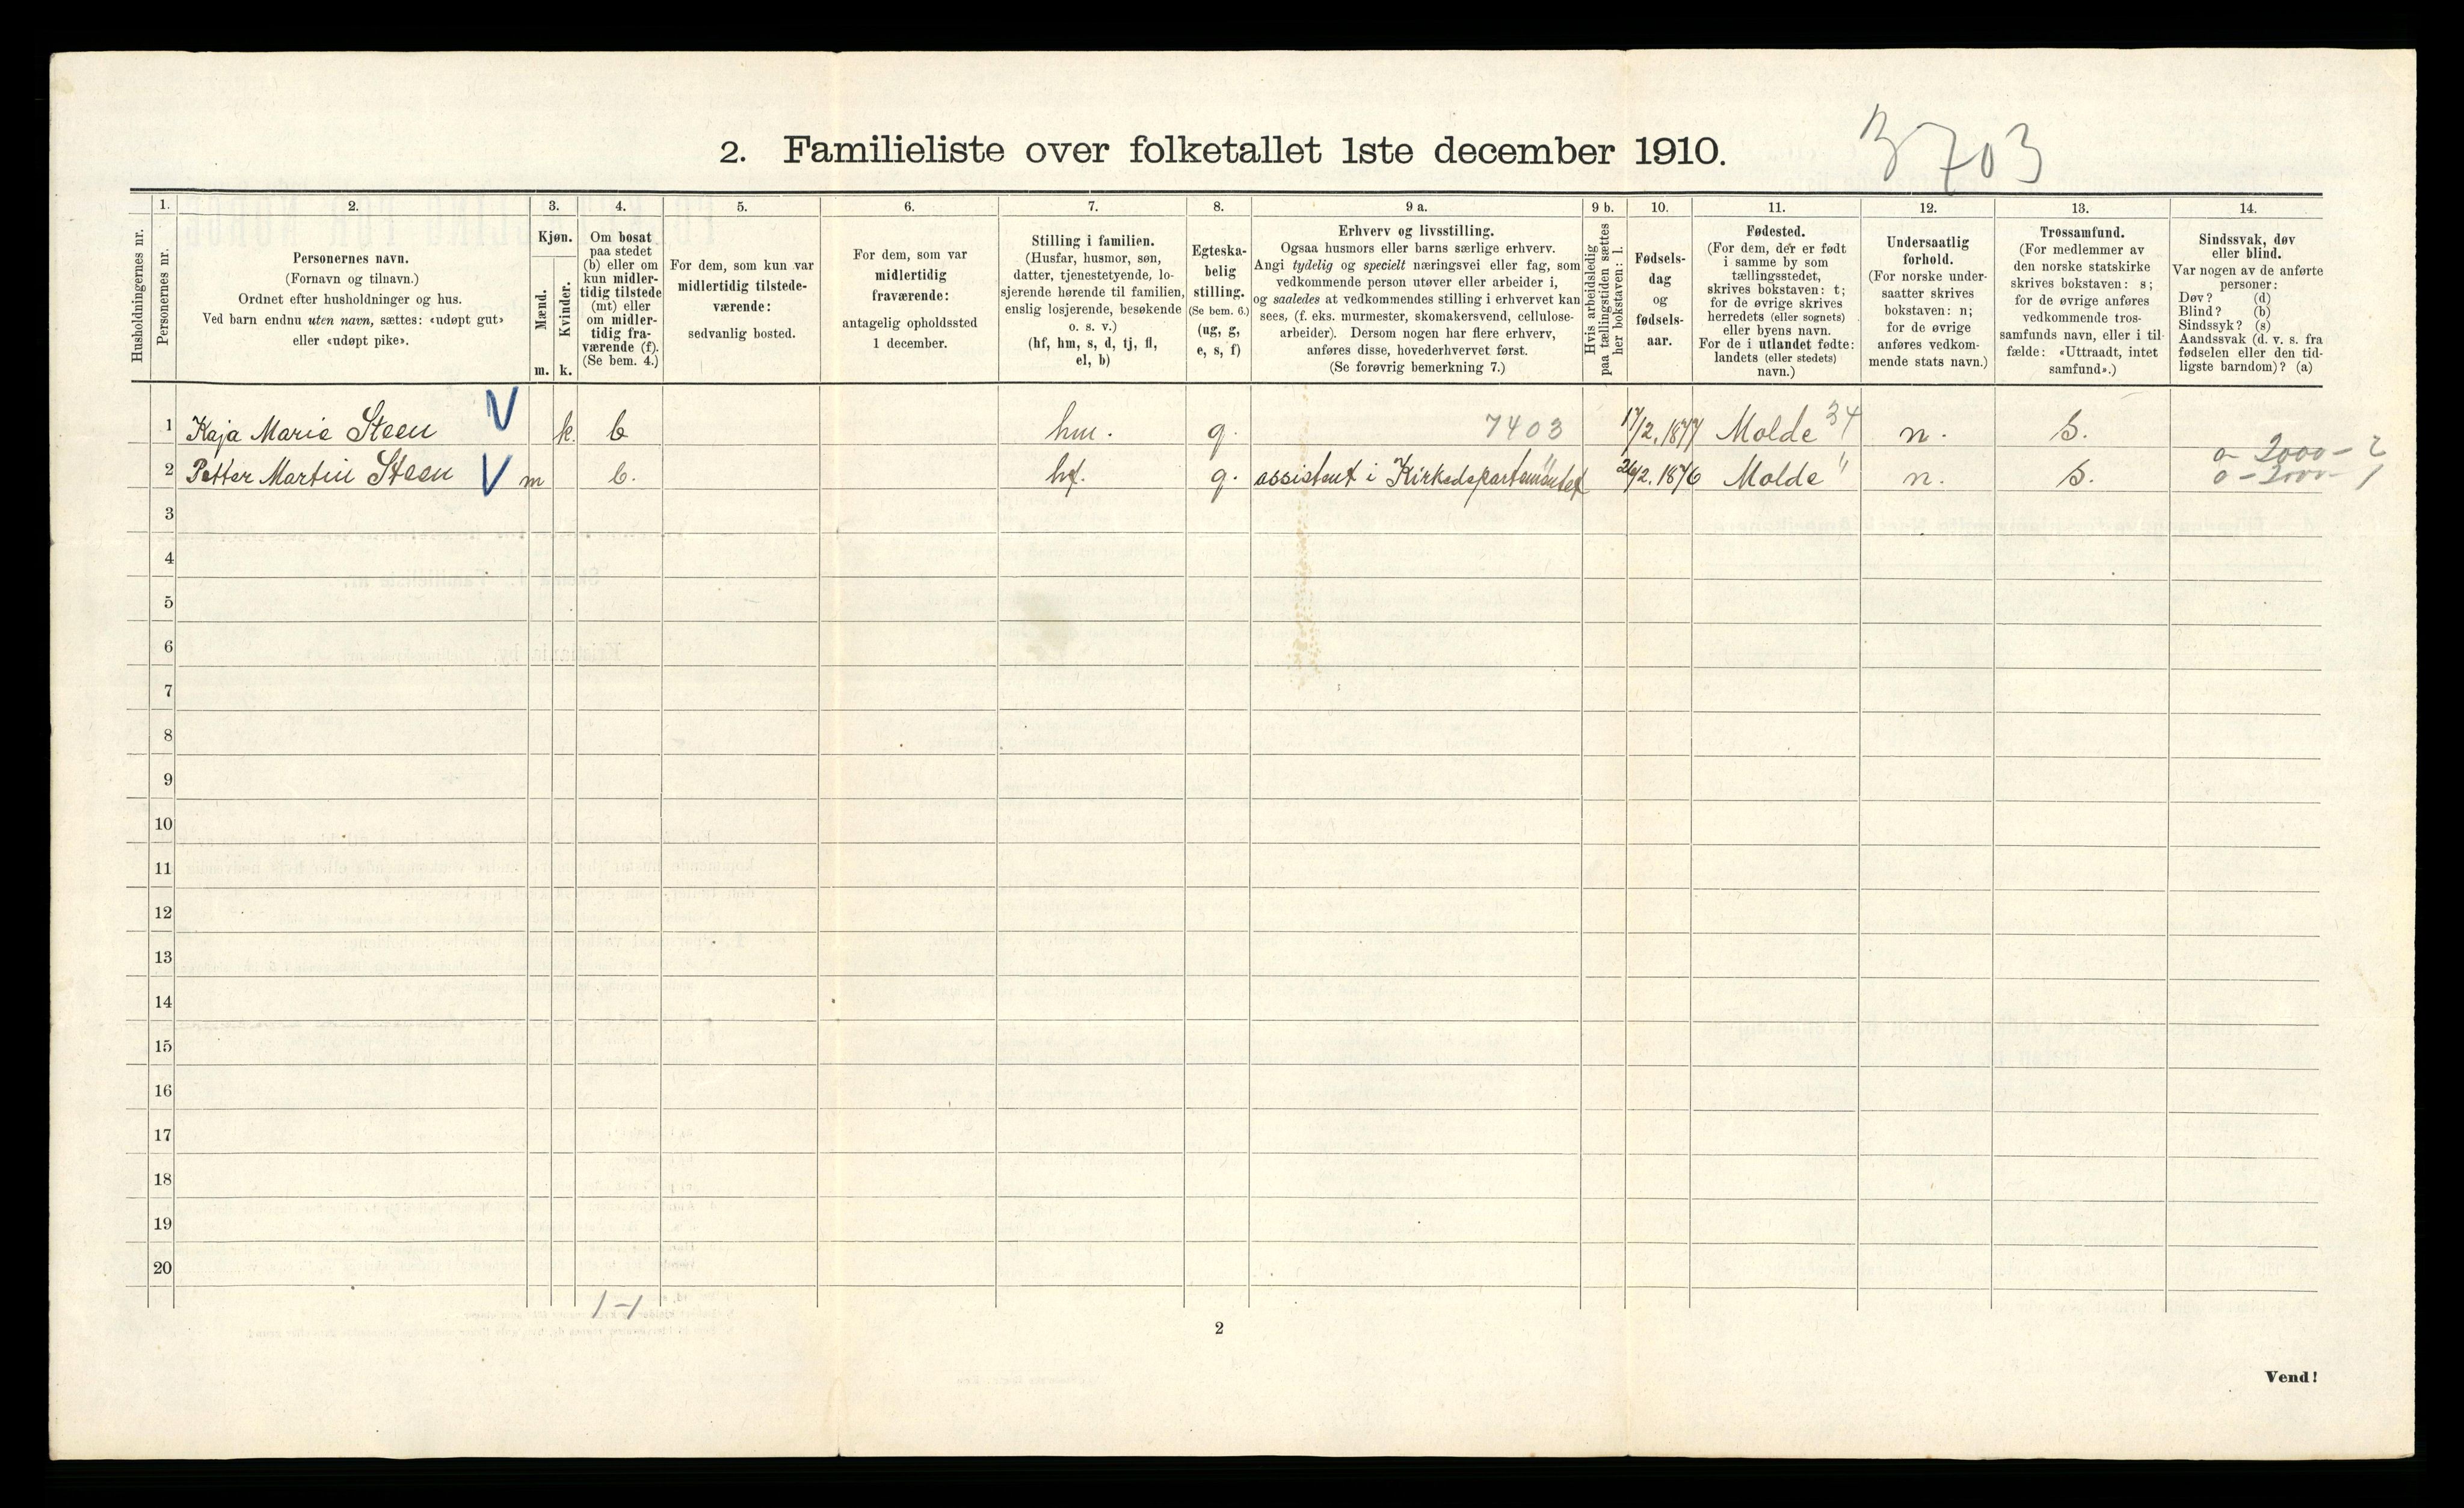 3703
2. Familieliste over folketallet 1ste december 1910.
Husholdningernes nr.
1.
Personernes nr.
2.
Personernes navn.
(Fornavn og tilnavn.)
Ordnet efter husholdninger og hus.
Ved barn endnu uten navn, sættes: «udøpt gut»
eller «udøpt pike».
3.
Kjøn.
Mænd.
Kvinder.
m. k.
4.
Om bosat
paa stedet
(b) eller om
kun midler-
tidig tilstede
(mt) eller
om midler-
tidig fra-
værende (f).
(Se bem. 4.)
5.
For dem, som kun var
midlertidig tilstede-
værende:
sedvanlig bosted.
6.
For dem, som var
midlertidig
fraværende:
antagelig opholdssted
1 december.
7.
Stilling i familien.
(Husfar, husmor, søn,
datter, tjenestetyende, lo-
sjerende hørende til familien,
enslig losjerende, besøkende
o. s. v.)
(hf, hm, s, d, tj, fl,
el, b)
8.
Egteska-
belig
stilling.
(Se bem. 6.)
(ug, g,
e, s, f)
9 a.
Erhverv og livsstilling.
Ogsaa husmors eller barns særlige erhverv.
Angi tydelig og specielt næringsvei eller fag, som
vedkommende person utøver eller arbeider i,
og saaledes at vedkommendes stilling i erhvervet kan
sees, (f. eks. murmester, skomakersvend, cellulose-
arbeider). Dersom nogen har flere erhverv,
anføres disse, hovederhvervet først.
(Se forøvrig bemerkning 7.)
9 b.
Hvis arbeidsledig
paa tællingstiden sættes
her bokstaven: l.
10.
Fødsels-
dag
og
fødsels-
aar.
11.
Fødested.
(For dem, der er født
i samme by som
tællingsstedet,
skrives bokstaven: t;
for de øvrige skrives
herredets (eller sognets)
eller byens navn.
For de i utlandet fødte:
landets (eller stedets)
navn.)
12.
Undersaatlig
forhold.
(For norske under-
saatter skrives
bokstaven: n;
for de øvrige
anføres vedkom-
mende stats navn.)
13.
Trossamfund.
(For medlemmer av
den norske statskirke
skrives bokstaven: s;
for de øvrige anføres
vedkommende tros-
samfunds navn, eller i til-
fælde: «Uttraadt, intet
samfund».)
14.
Sindssvak, døv
eller blind.
Var nogen av de anførte
personer:
Døv? (d)
Blind? (b)
Sindssyk? (s)
Aandssvak (d. v. s. fra
fødselen eller den tid-
ligste barndom)? (a)
1 Kaja Marie Steen V k. b hm. g. 7403 17/2.1877 Molde 34 n. s. 0-2000-2
2 Petter Martin Steen V m b. hf. g. assistent i Kirkedepartementet 26/2.1876 Molde " n. s. 0-2000-1
3
4
5
6
7
8
9
10
11
12
13
14
15
16
17
18
19
20
1-1
2
Vend!